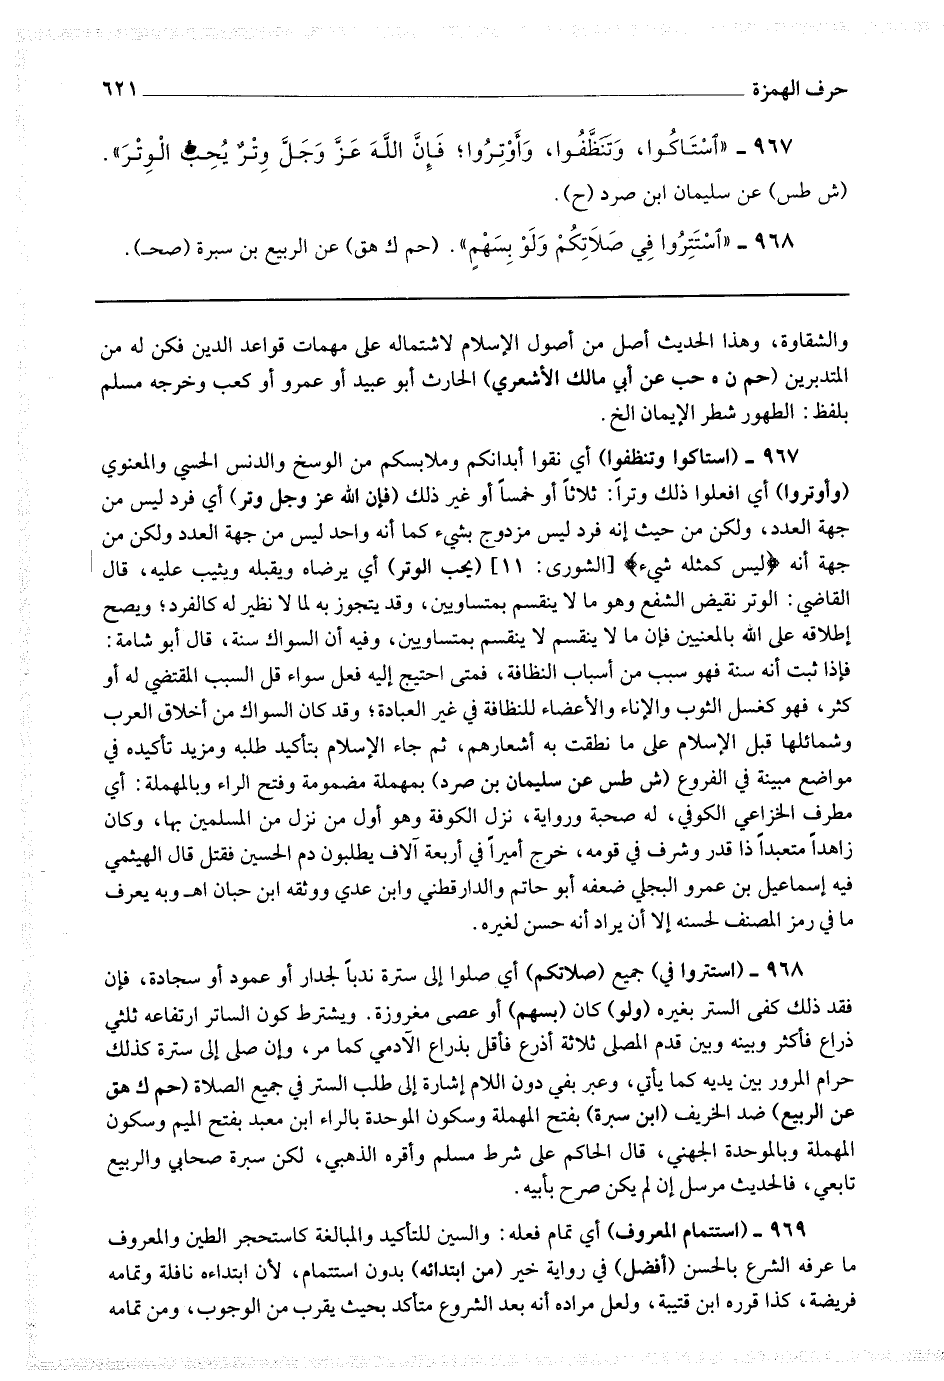 حرف الهمزة ٦٢١
٩٦٧ ـ «ٱسْتَاكُوا، وَتَنَظَّفُوا، وَأَوْتِرُوا؛ فَإِنَّ اللَّهَ عَزَّ وَجَلَّ وِتْرٌ يُحِبُّ الْوِتْرَ».
(ش طس) عن سليمان ابن صرد (ح).
٩٦٨ ـ «ٱسْتَتِرُوا فِي صَلَاتِكُمْ وَلَوْ بِسَهْمٍ». (حم ك هق) عن الربيع بن سبرة (صحـ).
والشقاوة، وهذا الحديث أصل من أصول الإسلام لاشتماله على مهمات قواعد الدين فكن له من
المتدبرين (حم ن ه حب عن أبي مالك الأشعري) الحارث أبو عبيد أو عمرو أو كعب وخرجه مسلم
بلفظ: الطهور شطر الإيمان الخ.
٩٦٧ ـ (استاكوا وتنظفوا) أي نقوا أبدانكم وملابسكم من الوسخ والدنس الحسي والمعنوي
(وأوتروا) أي افعلوا ذلك وتراً: ثلاثاً أو خمساً أو غير ذلك (فإن الله عز وجل وتر) أي فرد ليس من
جهة العدد، ولكن من حيث إنه فرد ليس مزدوج بشيء كما أنه واحد ليس من جهة العدد ولكن من
جهة أنه ﴿ليس كمثله شيء﴾ [الشورى: ١١] (يحب الوتر) أي يرضاه ويقبله ويثيب عليه، قال
القاضي: الوتر نقيض الشفع وهو ما لا ينقسم بمتساويين، وقد يتجوز به لما لا نظير له كالفرد؛ ويصح
إطلاقه على الله بالمعنيين فإن ما لا ينقسم لا ينقسم بمتساويين، وفيه أن السواك سنة، قال أبو شامة:
فإذا ثبت أنه سنة فهو سبب من أسباب النظافة، فمتى احتيج إليه فعل سواء قل السبب المقتضي له أو
كثر، فهو كغسل الثوب والإناء والأعضاء للنظافة في غير العبادة؛ وقد كان السواك من أخلاق العرب
وشمائلها قبل الإسلام على ما نطقت به أشعارهم، ثم جاء الإسلام بتأكيد طلبه ومزيد تأكيده في
مواضع مبينة في الفروع (ش طس عن سليمان بن صرد) بمهملة مضمومة وفتح الراء وبالمهملة: أي
مطرف الخزاعي الكوفي، له صحبة ورواية، نزل الكوفة وهو أول من نزل من المسلمين بها، وكان
زاهداً متعبداً ذا قدر وشرف في قومه، خرج أميراً في أربعة آلاف يطلبون دم الحسين فقتل قال الهيثمي
فيه إسماعيل بن عمرو البجلي ضعفه أبو حاتم والدارقطني وابن عدي ووثقه ابن حبان اهـ وبه يعرف
ما في رمز المصنف لحسنه إلا أن يراد أنه حسن لغيره.
٩٦٨ ـ (استتروا في) جميع (صلاتكم) أي صلوا إلى سترة ندباً لجدار أو عمود أو سجادة، فإن
فقد ذلك كفى الستر بغيره (ولو) كان (بسهم) أو عصى مغروزة. ويشترط كون الساتر ارتفاعه ثلثي
ذراع فأكثر وبينه وبين قدم المصلى ثلاثة أذرع فأقل بذراع الآدمي كما مر، وإن صلى إلى سترة كذلك
حرام المرور بين يديه كما يأتي، وعبر بفي دون اللام إشارة إلى طلب الستر في جميع الصلاة (حم ك هق
عن الربيع) ضد الخريف (ابن سبرة) بفتح المهملة وسكون الموحدة بالراء ابن معبد بفتح الميم وسكون
المهملة وبالموحدة الجهني، قال الحاكم على شرط مسلم وأقره الذهبي، لكن سبرة صحابي والربيع
تابعي، فالحديث مرسل إن لم يكن صرح بأبيه.
٩٦٩ ـ (استتمام المعروف) أي تمام فعله: والسين للتأكيد والمبالغة كاستحجر الطين والمعروف
ما عرفه الشرع بالحسن (أفضل) في رواية خير (من ابتدائه) بدون استتمام، لأن ابتداءه نافلة وتمامه
فريضة، كذا قرره ابن قتيبة، ولعل مراده أنه بعد الشروع متأكد بحيث يقرب من الوجوب، ومن تمامه